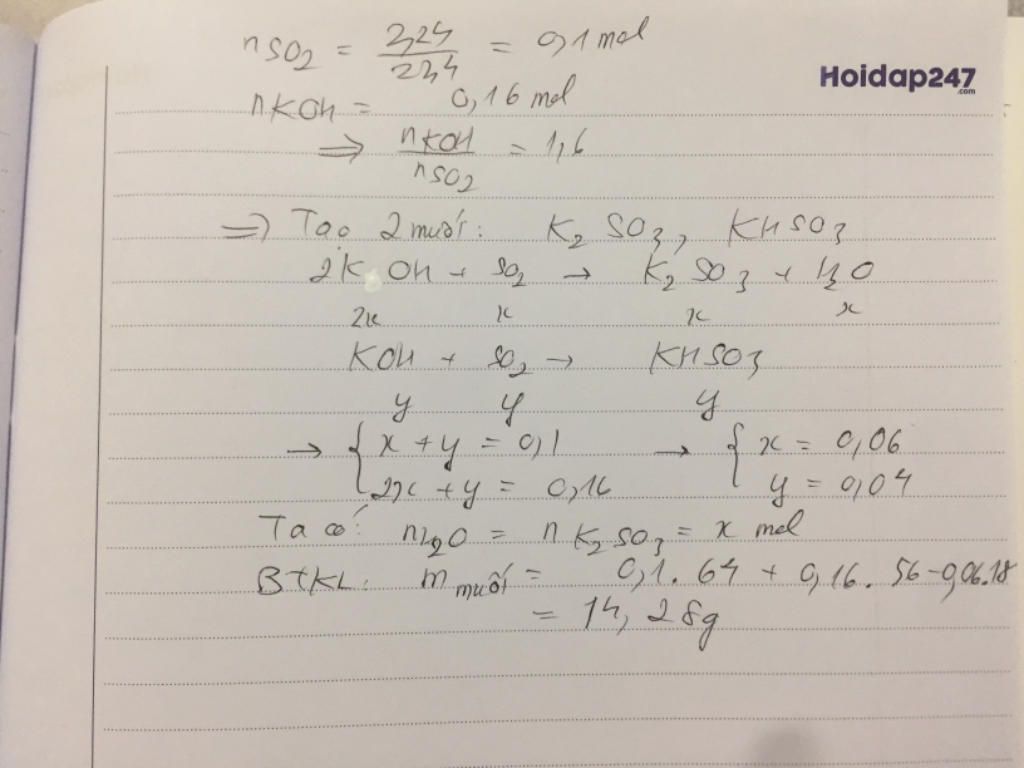 nSO2 = 2,24/22,4 = 0,1 mol
Hoidap247
.com
nKOH = 0,16 mol
⇒ nKOH/nSO2 = 1,6
⇒ Tạo 2 muối: K2SO3, KHSO3
2KOH + SO2 → K2SO3 + H2O
2x x x x
KOH + SO2 → KHSO3
y y y
→ { x + y = 0,1 → { x = 0,06
2x + y = 0,16 y = 0,04
Ta có: nH2O = nK2SO3 = x mol
BTKL: m muối = 0,1.64 + 0,16.56-0,06.18
= 14,28g